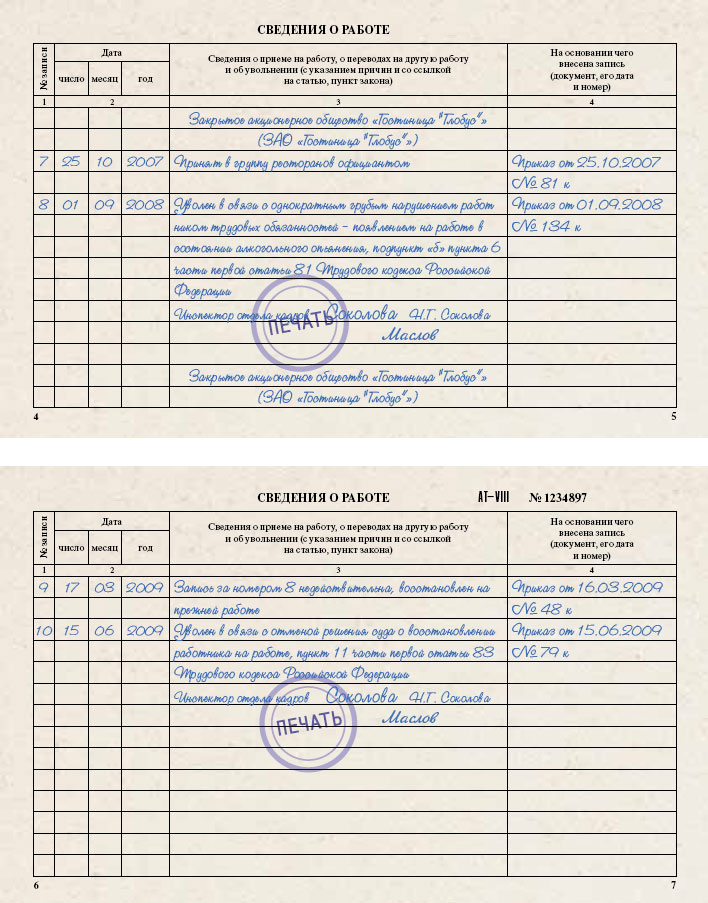 СВЕДЕНИЯ О РАБОТЕ
№ записи
Дата
число месяц год
Сведения о приеме на работу, о переводах на другую работу
и об увольнении (с указанием причин и со ссылкой
на статью, пункт закона)
На основании чего
внесена запись
(документ, его дата
и номер)
1 2 3 4
Закрытое акционерное общество «Гостиница "Глобус"»
(ЗАО «Гостиница "Глобус"»)
7 25 10 2007 Принят в группу ресторанов официантом Приказ от 25.10.2007
№ 81 к
8 01 09 2008 Уволен в связи с однократным грубым нарушением работ Приказ от 01.09.2008
ником трудовых обязанностей – появлением на работе в № 134 к
состоянии алкогольного опьянения, подпункт «б» пункта 6
части первой статьи 81 Трудового кодекса Российской
Федерации
Инспектор отдела кадров Соколова Н.Г. Соколова
ПЕЧАТЬ
Маслов
Закрытое акционерное общество «Гостиница "Глобус"»
(ЗАО «Гостиница "Глобус"»)
4 5
СВЕДЕНИЯ О РАБОТЕ AT-VIII № 1234897
№ записи
Дата
число месяц год
Сведения о приеме на работу, о переводах на другую работу
и об увольнении (с указанием причин и со ссылкой
на статью, пункт закона)
На основании чего
внесена запись
(документ, его дата
и номер)
1 2 3 4
9 17 03 2009 Запись за номером 8 недействительна, восстановлен на Приказ от 16.03.2009
прежней работе № 48 к
10 15 06 2009 Уволен в связи с отменой решения суда о восстановлении Приказ от 15.06.2009
работника на работе, пункт 11 части первой статьи 83 № 79 к
Трудового кодекса Российской Федерации
Инспектор отдела кадров Соколова Н.Г. Соколова
ПЕЧАТЬ
Маслов
6 7